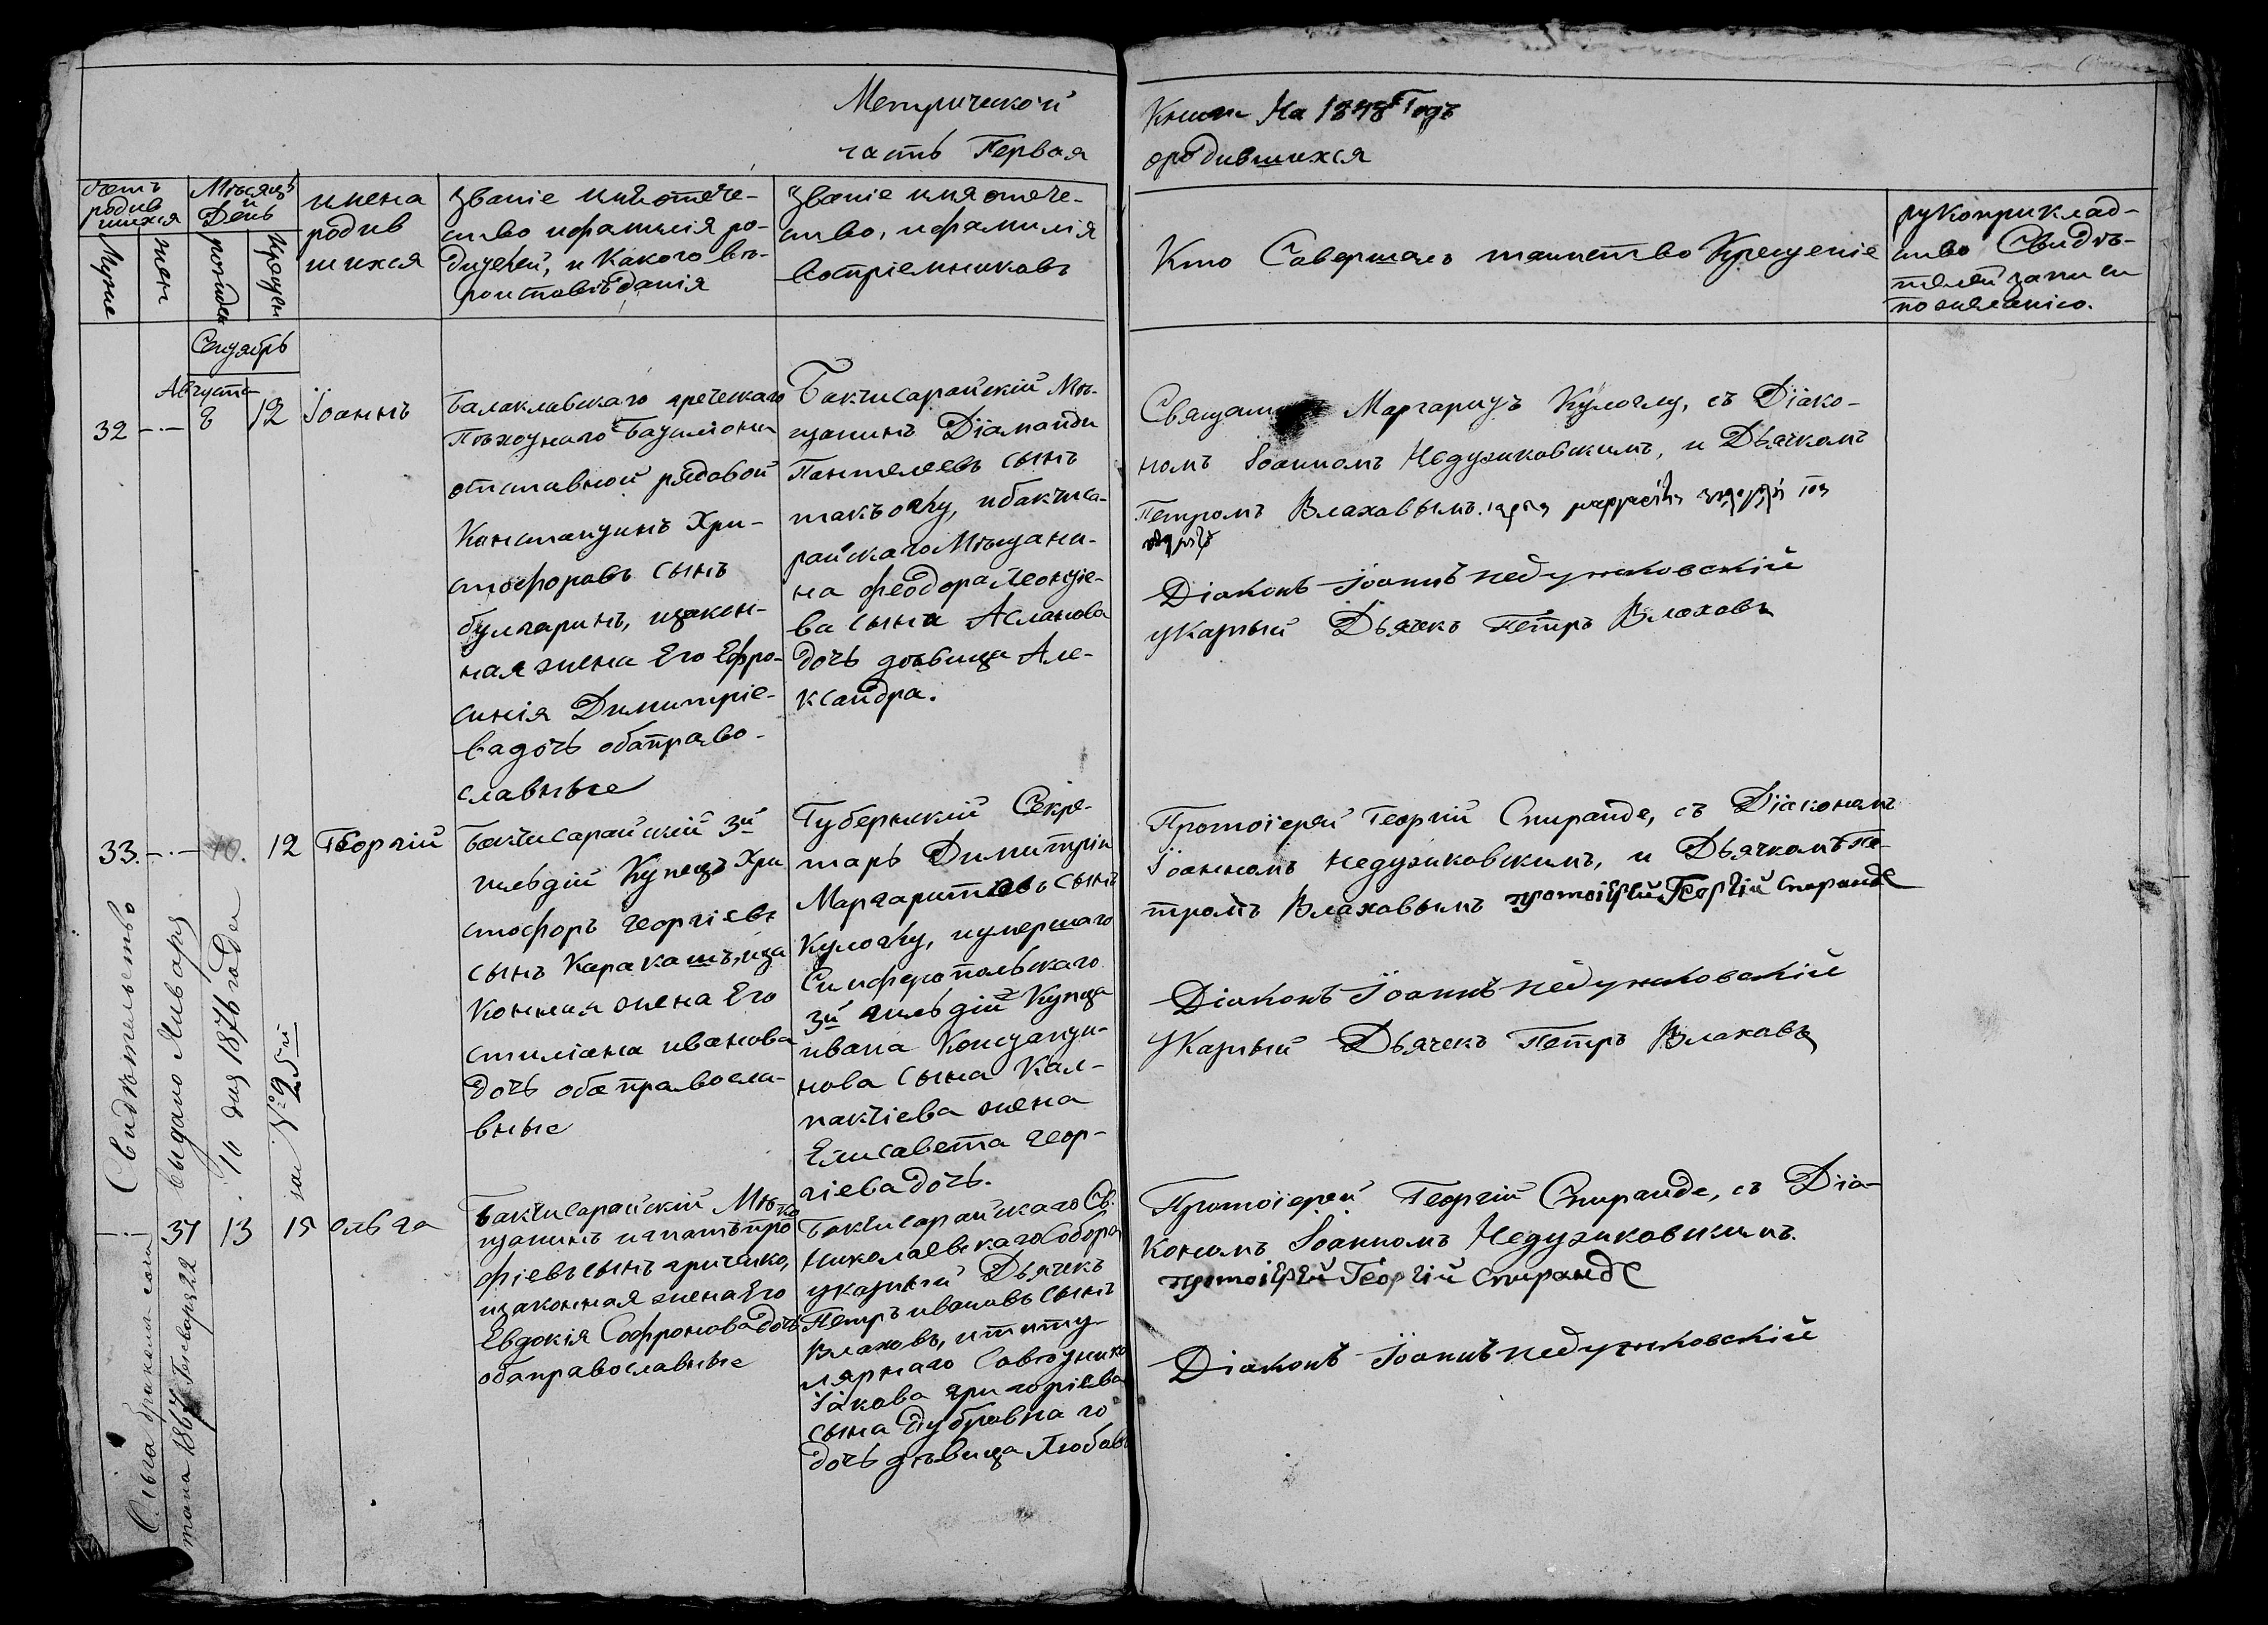 Метрической
часть Первая
Книги На 1848 Годъ
ородившихся
Счетъ
родив
шихся
Муже
жен
Мѣсяцъ
и
День
рожден
Крещен
имена
родив
шихся
Званіе имя отече-
ство ифамилія ро-
дителей, и Какого вѣ-
роисповѣданія
Званіе имя отече-
ство, ифамилія
Восприемниковъ
Кто Савершалъ таинство Крещеніе
рукоприклад-
ство Свидѣ-
телей записи
по желанію.
Сентябрь
Августа
32
8
12
Іоаннъ
Балаклавскаго греческаго
Пѣхотнаго Баталіона
отставной рядовой
Константинъ Хри-
стофоровъ сынъ
булгаринъ, изакон-
ная жена Его Ефро-
синія Димитріе-
ва дочь оба право-
славные
Бакчисарайскій Мѣ-
щанинъ Діаманди
Пантелеевъ сынъ
такъоглу, ибакчиса-
райскаго Мѣщани-
на феодора Леонтіе-
ва сына Асланова
дочь дѣвица Але-
ксандра.
Маргаритъ Кулоглу, съ Діако-
номъ Іоанномъ Недузиковскимъ, и Дьячкомъ
Петромъ Влаховымъ.
Діаконъ Іоаннъ недузиковскій
указный Дьячекъ Петръ Влаховъ
33.
10.
12
Георгій
Бакчисарайскій 3й
гильдіи Купецъ Хри
стофоръ георгіевъ
сынъ Каракашъ, иза
Конная жена Его
стиліана иванова
дочь оба правосла-
вные
Губернскій Секре-
тарь Димитрій
Маргаритовъ сынъ
Кулоглу, иумершаго
Симферопольскаго
3й гильдіи Купца
ивана Констанди-
нова сына Кал-
пакчіева жена
Елисавета геор-
гіева дочь.
Протоіерей Георгій Спиранде, съ Діаконамъ
Іоанномъ недузиковскимъ, и Дьячкомъ Пе-
тромъ Влаховымъ протоіерей Георгій спиранде
Діаконъ Іоаннъ недузиковскій
Указный Дьячекъ Петръ Влаховъ
Свидѣтельство
выдано Января
10 дня 1876 года
за №
34
13
15
ольга
Бакчисарайскій Мѣ-
щанинъ игнатъ про
фіевъ сынъ гриченко,
изаконная жена Его
Евдокія Софронова дочь
оба православные
Бакчисарайскаго Св.
Николаевскаго Собора
указный Дьячекъ
Петръ ивановъ сынъ
Влаховъ, ититу-
лярнаго Совѣтника
Іакова григоріева
сына дубровна го
дочь дѣвица Любовь
Протоіерей Георгій Спиранде, съ Діа-
кономъ Іоанномъ Недузиковскимъ.
протоіерей Георгій спиранде
Діаконъ Іоаннъ недузиковскій
Ольга